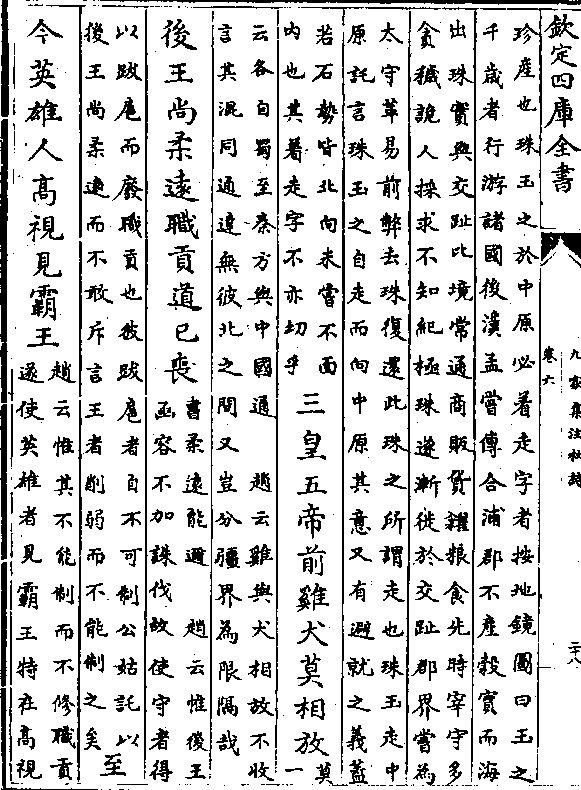 欽定四庫全書
九家集注杜詩
卷六
二十八
珍產也珠玉之於中原必著走字者按地鏡圖曰玉之
千歲者行游諸國後漢孟嘗傳合浦郡不產穀實而海
出珠寶與交趾比境常通商販貨糴粮食先時宰守多
貪穢詭人採求不知紀極珠遂漸徙於交趾郡界嘗為
太守革易前弊去珠復還此珠之所謂走也珠玉走中
原託言珠玉之自走而向中原其意又有避就之義蓋
若石勢皆北向未嘗不面
內也其著走字不亦切乎
三皇五帝前雞犬莫相放
莫
一
云各自蜀至秦方與中國通 趙云雞與犬相放不收
言其混同通達無彼此之間又豈分疆界為限隔哉
後王尚柔遠職貢道已喪
書柔遠能邇 趙云惟後王
函容不加誅伐故使守者得
以跋扈而廢職貢也彼跋扈者自不可制公姑託以
後王尚柔遠而不敢斥言王者削弱而不能制之矣
至
今英雄人高視見霸王
趙云惟其不能制而不修職貢
遂使英雄者見霸王特在高視